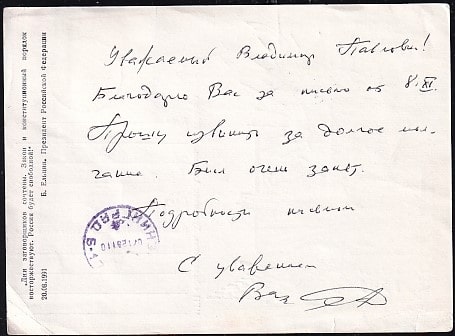 Уважаемый Владимир Павлович!
Благодарю Вас за письмо от 8.XI.
Прошу извинить за долгое мол-
чание. Был очень занят.
Подробности письмом
С уважением
Ваш
"Дни заговорщиков сочтены. Закон и конституционный порядок
восторжествуют. Россия будет свободной!"
Б. Ельцин, Президент Российской Федерации
20.08.1991